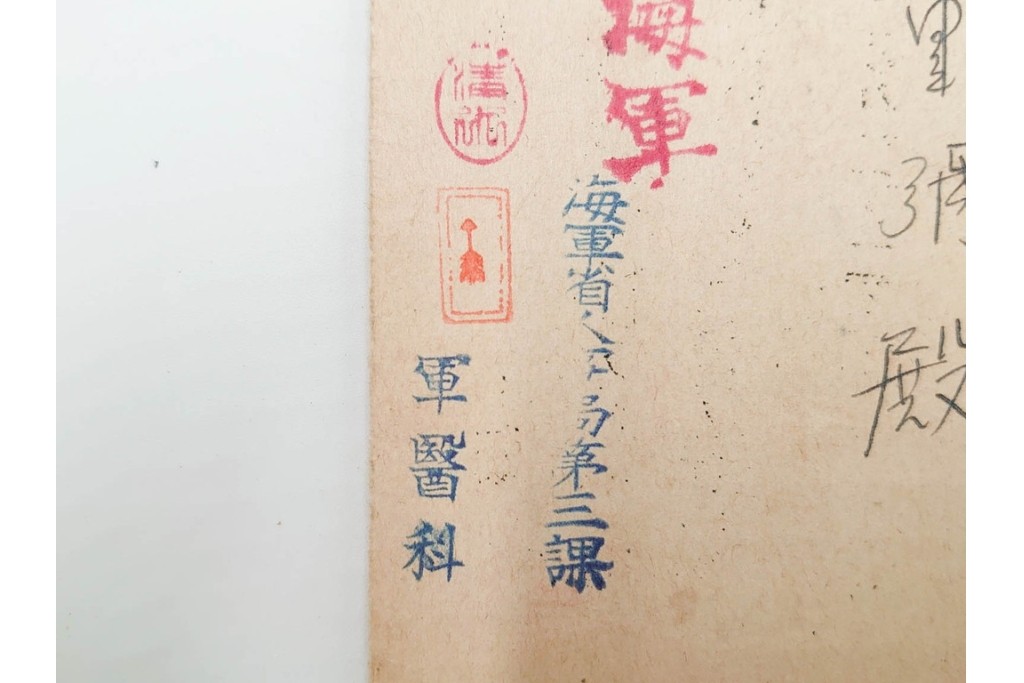 殿
海軍
海軍省人事局第三課
軍醫科